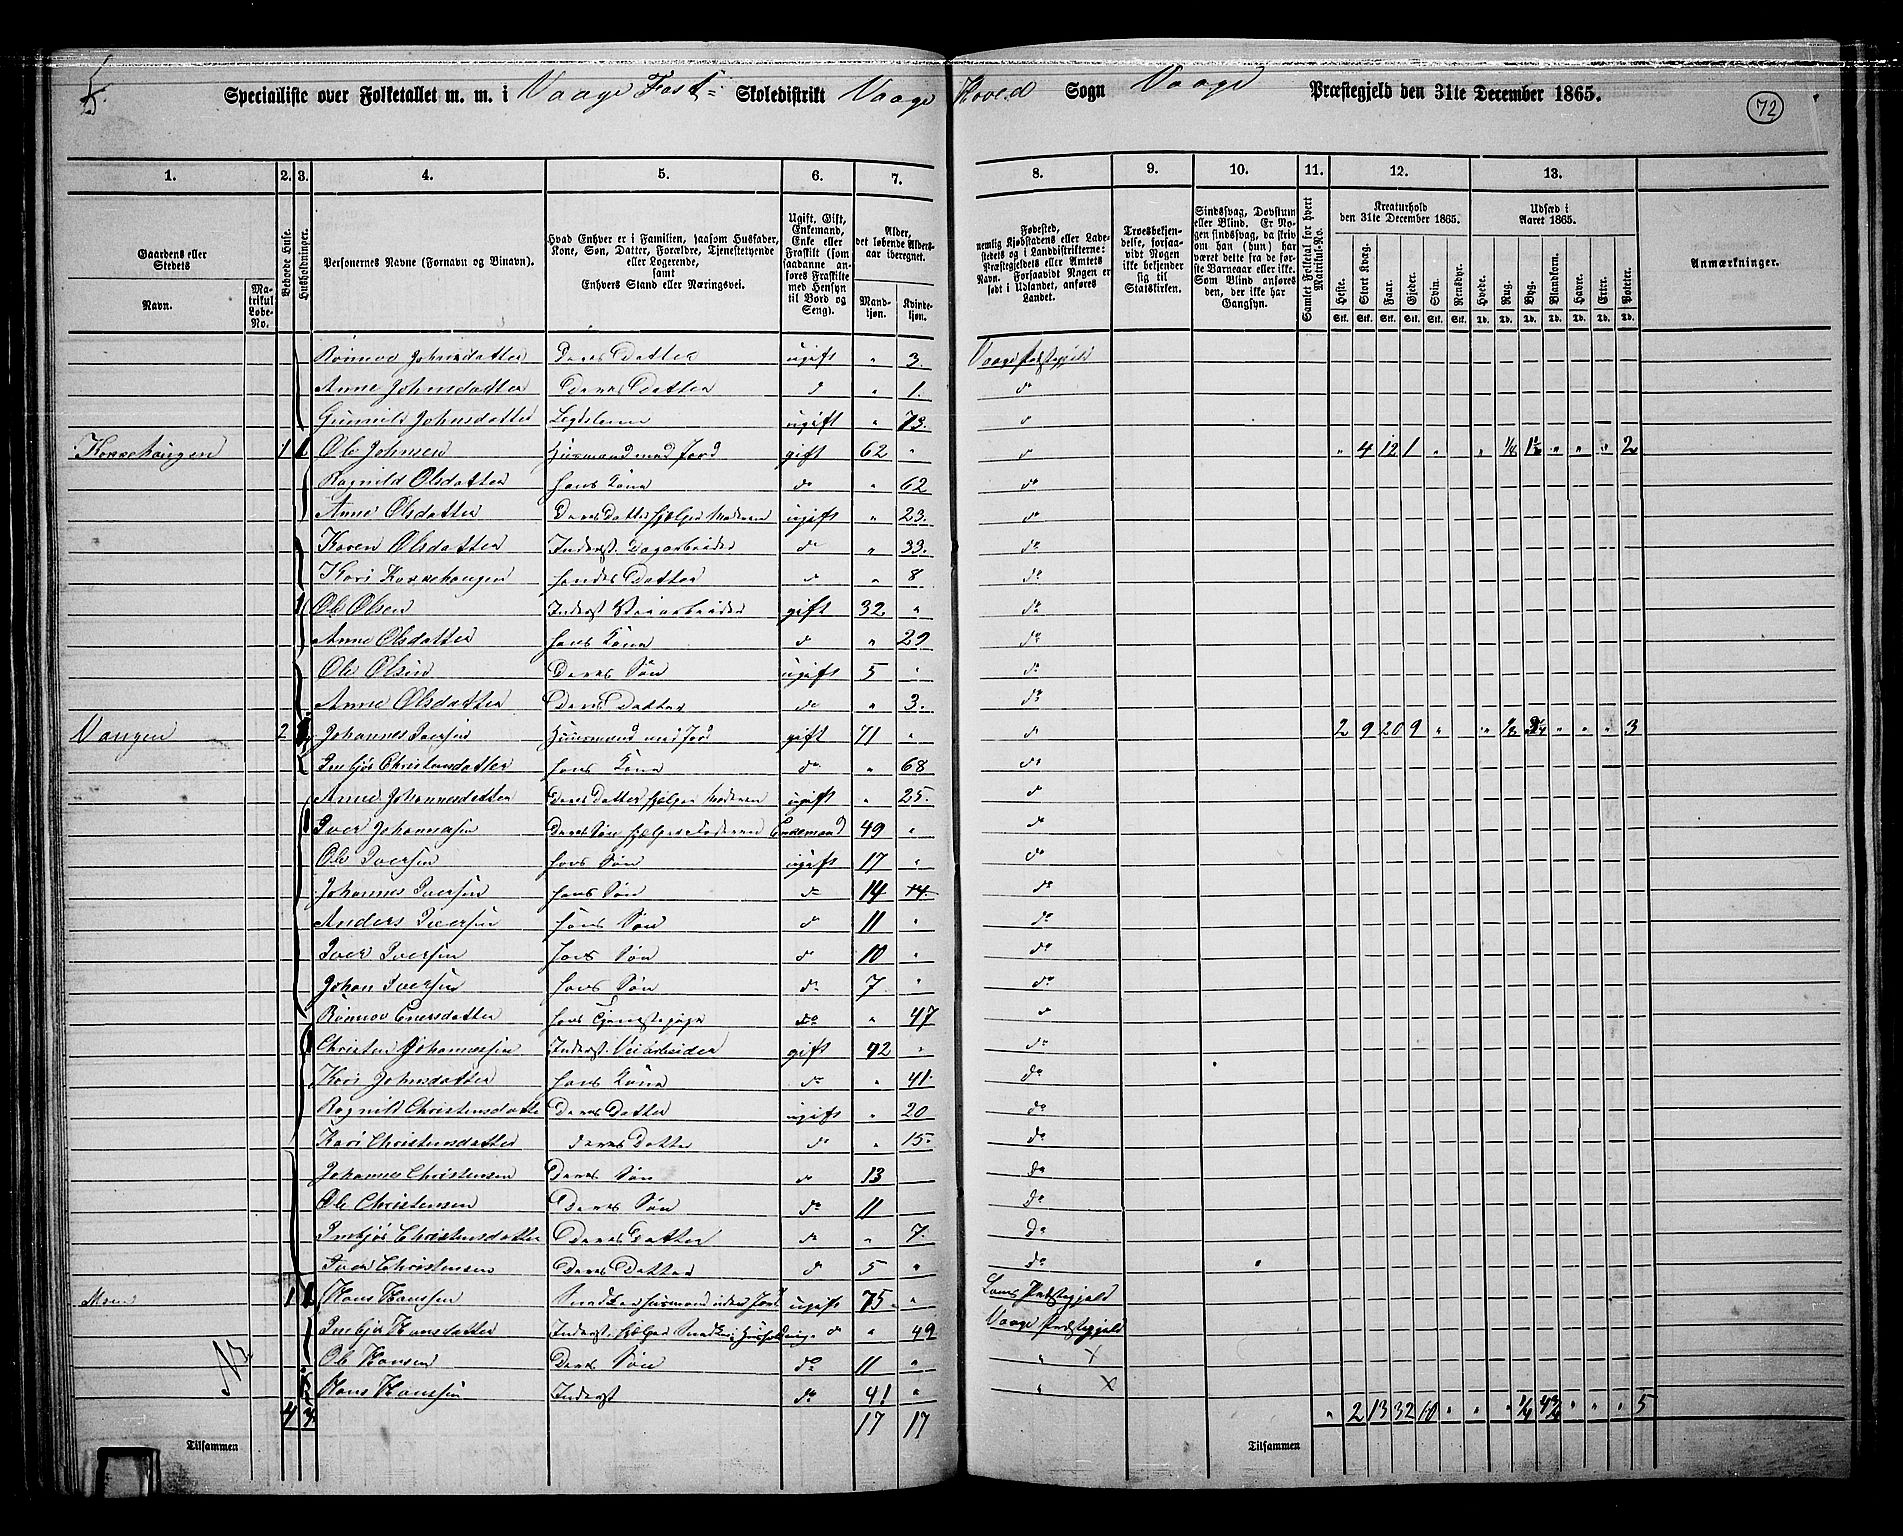 Specialliste over Folketallet m. m. i Vaage Fast= Skoledistrikt Vaage Hoved Sogn Vaage Præstegjeld den 31te December 1865.
72
1. 2. 3. 4. 5. 6. 7. 8. 9. 10. 11. 12. 13.
Gaardens eller Stedets
Navn.
Matrikul Løbe-No.
Beboede Huse.
Husholdninger.
Personernes Navne (Fornavn og Binavn).
Hvad Enhver er i Familien, saasom Husfader, Kone, Søn, Datter, Forældre, Tjenestetyende eller Logerende, samt Enhvers Stand eller Næringsvei.
Ugift, Gift, Enkemand, Enke eller Fraskilt (som saadanne anføres Fraskilte med Hensyn til Bord og Seng).
Alder, det løbende Alders-aar iberegnet.
Mandkjøn.
Kvindekjøn.
Fødested, nemlig Kjøbstadens eller Ladestedets og i Landdistrikterne: Præstegjeldets eller Amtets Navn. Forsaavidt Nogen er født i Udlandet, anføres Landet.
Troesbekjendelse, forsaavidt Nogen ikke bekjender sig til Statskirken.
Sindssvag, Døvstum eller Blind. Er Nogen sindssvag, da skriv om han (hun) har været dette fra de første Barneaar eller ikke. Som Blind anføres den, der ikke har Gangsyn.
Samlet Folketal for hvert Matrikul-No.
Kreaturhold den 31te December 1865.
Heste. Stort Kvæg. Faar. Gjeder. Svin. Rensdyr.
Udsæd i Aaret 1865.
Hvede. Rug. Byg. Blandkorn. Havre. Erter. Poteter.
Anmærkninger.
Rønnov Johnsdatter Deres Datter ugift " 3. Vaage Præstegjeld
Anne Johnsdatter Deres Datter d " 1. d
Gunnild Johnsdatter Legdslem ugift " 73. d
Korsehaugen 1 1 Ole Johnsen Huusmand med Jord gift 62 " d " 4 12 1 " " " 1/4 " " " 2
Ragnild Olsdatter hans Kone do " 62 do
Anne Olsdatter Deres Datter hjelper Moderen ugift " 23. do
Karen Olsdatter Inderst Dagarbeider do " 33. do
Kari Korsehaugen hendes Datter d " 8 do
1 Ole Olsen Inderst Veiarbeider gift 32 " do
Anne Olsdatter hans Kone d " 29 do
Ole Olsen Deres Søn ugift 5 " do
Anne Olsdatter Deres Datter do " 3. do
Vangen 2 Johannes Iversen Huusmand med Jord gift 71 " d 2 9 20 9 " " " " " " 3
Imbjør Christensdatter hans Kone do " 68 do
Anne Johannesdatter Deres Datter hjelper Moderen ugift " 25. d
Iver Johannesen Deres Søn hjelper Faderen Enkemand 49 " do
Ole Iversen hans Søn ugift 17 " do
Johannes Iversen hans Søn do 14 14. do
Anders Iversen hans Søn d 11 " do
Iver Iversen hans Søn d 10 " do
Johan Iversen hans Søn do 7 " do
Rønnov Enersdatter hans Tjenestepige do " 47 d
Christen Johannessen Inderst Veiarbeider gift 42 " do
Kari Johnsdatter hans Kone do " 41. do
Ragnild Christensdatter Deres Datter ugift " 20 do
Kari Christensdatter deres Datter do " 15 do
Johannes Christensen Deres Søn d 13 do
Ole Christensen Deres Søn do 11 do
Imbjør Christensdatter Deres Datter do " 7. do
Iver Christensen Deres Datter d 5 " do
Moen 1 1 Hans Hansen Snedker Husmand uden Jord ugift 75 " Loms Præstegjeld
Imbjør Hansdatter Inderst hjelper d " 49 Vaage Præstegjeld
Ole Hansen Deres Søn do 11 " " x
Hans Hansen Inderst do 41. " " x
4 17 17 " 2 13 32 10 " " " 1/4 " " " 5
Tilsammen
Tilsammen